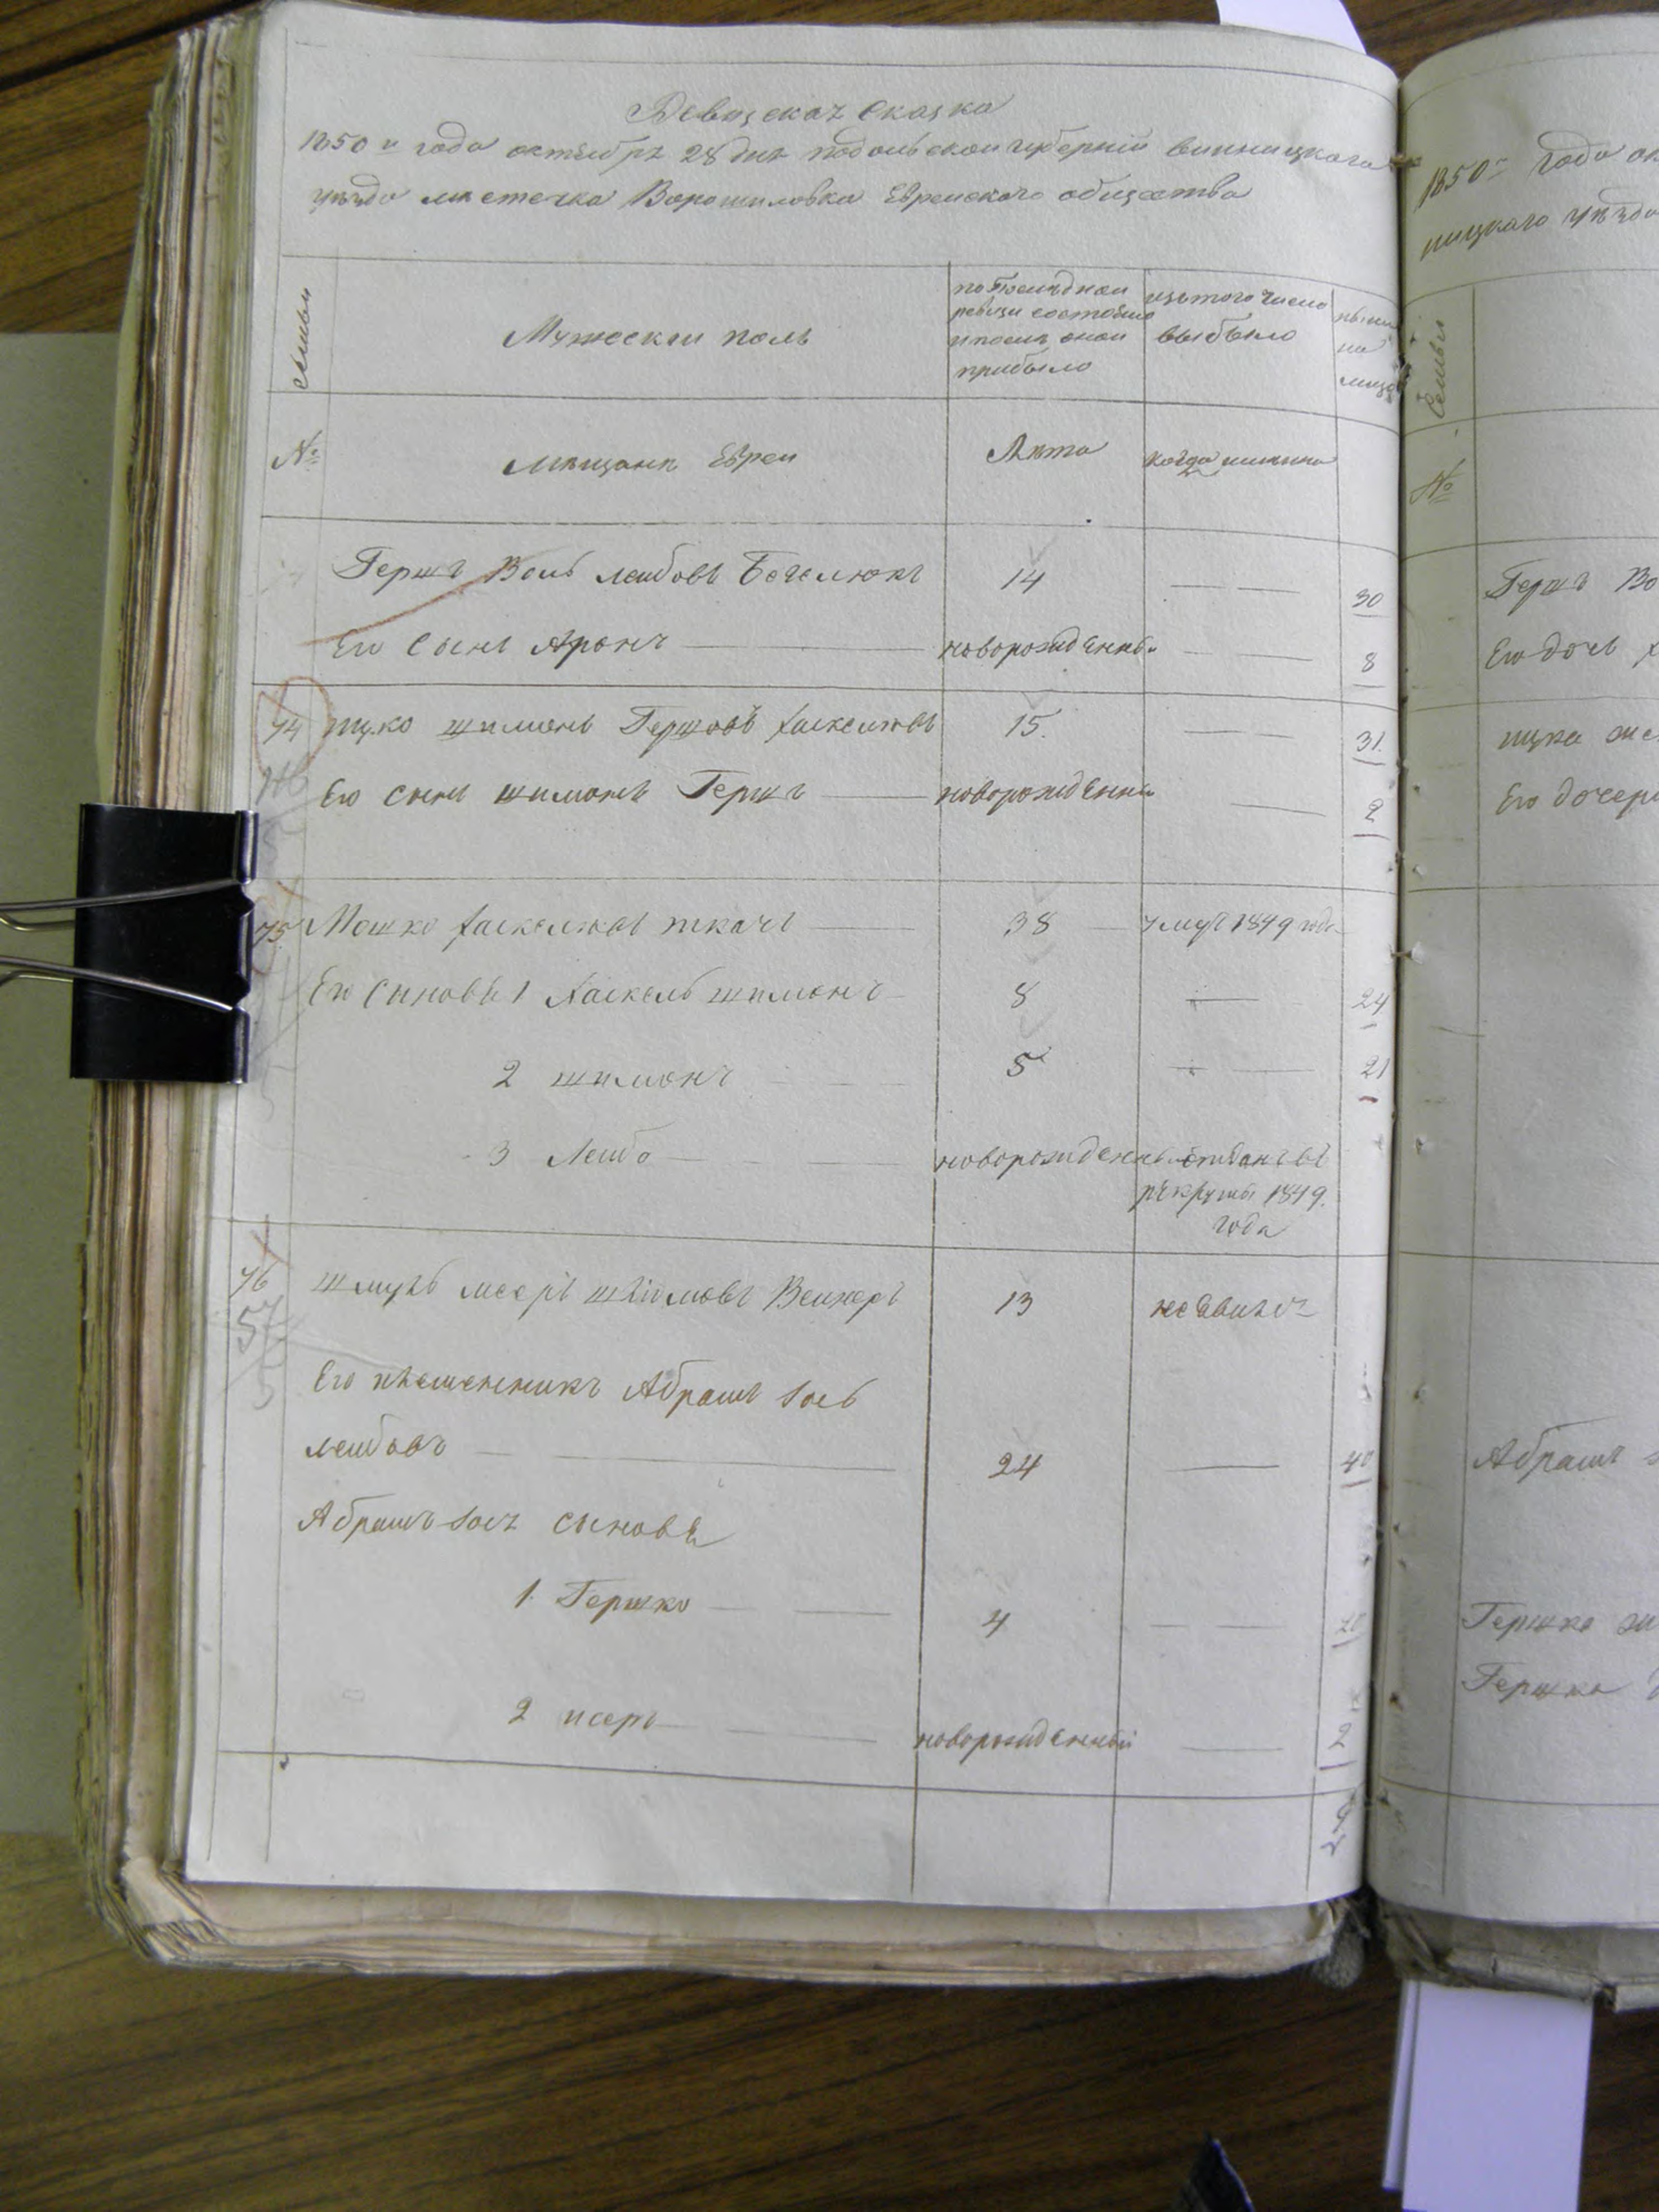 Ревизская Сказка
1850 го года октября 28 дня подольской губернiи винницкаго
уезда местечка Ворошиловка Еврейскаго общества
Семьи
Мужескии полъ
по последнеи
ревизи состояло
и после онои
прибыло
изътого числа
выбыло
ныне
на
лицо
№
Мещане Евреи
Лета
когда имянно
Гершъ Воль лейбовъ Бечелюкъ 14 30
Его Сынъ Аронъ новорожденны 8
74 ицко шимонъ Гершовъ 15. 31
Его сынъ шимонъ Гершъ новорожденны 2
75 Мошко ткачъ 38 умеръ 1849 года
Его Сыновья 1 Хаскель шимонъ 8 24
2 шимонъ 5 21
3 Лейба новорожденны отданъ въ
рекруты 1849.
года
76 шмуль мееръ 13 неявился
57
5
Его племенникъ Абрамъ
лейбовъ 24 40
Абрамъ сыновья
1. Гершко 4 20
2 исеръ новорожденный 2
1850 го года
ницкаго уезда
Семьи
№
Гершъ Во
Его дочь
ицка же
Его дочери
Абрамъ
Гершка
Гершка